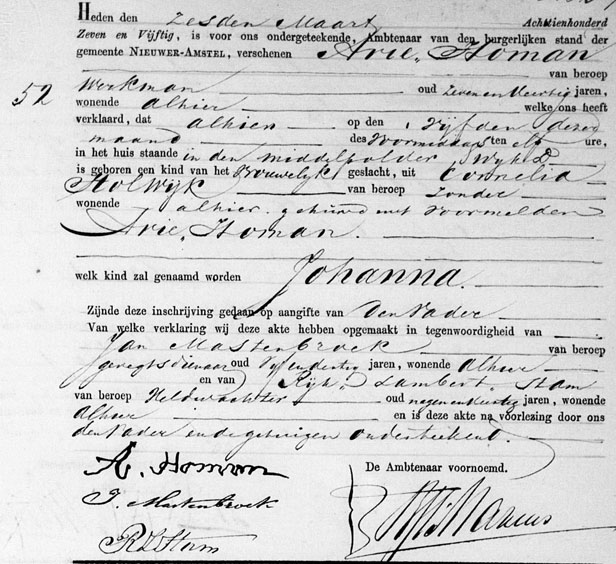 Heden den zesden Maart Achttienhonderd
Zeven en Vijftig, is voor ons ondergeteekende, Ambtenaar van den burgerlijken stand der
gemeente NIEUWER-AMSTEL, verschenen Arie Homan
van beroep
52
Werkman oud Zeven en Veertig jaren,
wonende alhier welke ons heeft
verklaard, dat alhier op den Vijfden dezer
maand des Voormiddags ten elf ure,
in het huis staande in den middelpolder, Wijk D
is geboren een kind van het Vrouwelijk geslacht, uit Cornelia
Holwijk van beroep zonder
wonende alhier gehuwd met voormelden
Arie, Homan.
welk kind zal genaamd worden Johanna.
Zijnde deze inschrijving gedaan op aangifte van den Vader
Van welke verklaring wij deze akte hebben opgemaakt in tegenwoordigheid van
Jan Mastenbroek van beroep
geregtsdienaar oud Vijfendertig jaren, wonende alhier
en van Rijk Lambert Stam
van beroep Veldwachter oud negen en Veertig jaren, wonende
alhier en is deze akte na voorlezing door ons
den Vader en de getuigen onderteekend.
A. Homan
De Ambtenaar voornoemd.
J. Mastenbroek
R L Stam